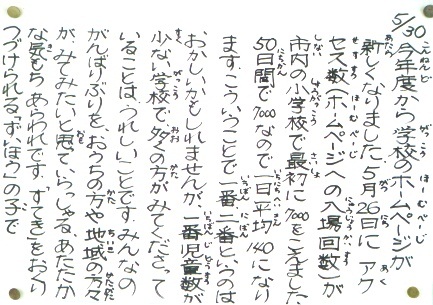 5/30 今年度から学校のホームページが
新しくなりました。5月26日に アク
セス数(ホームページへの入場回数)が
市内の小学校で最初に7000をこえました
50日間で7000なので一日平均140になり
ます。こういうことで一番二番というのは
おかしいかもしれませんが、一番児童数が
少ない学校で、多くの方がみてくださって
いることは、うれしいことです。みんなの
がんばりぶりを、おうちの方や地域の方々
が、みてみたいと思っていらっしゃる、あたたか
な気もち あらわれです。すてきをおり
つづけられる「ずいほう」の子で